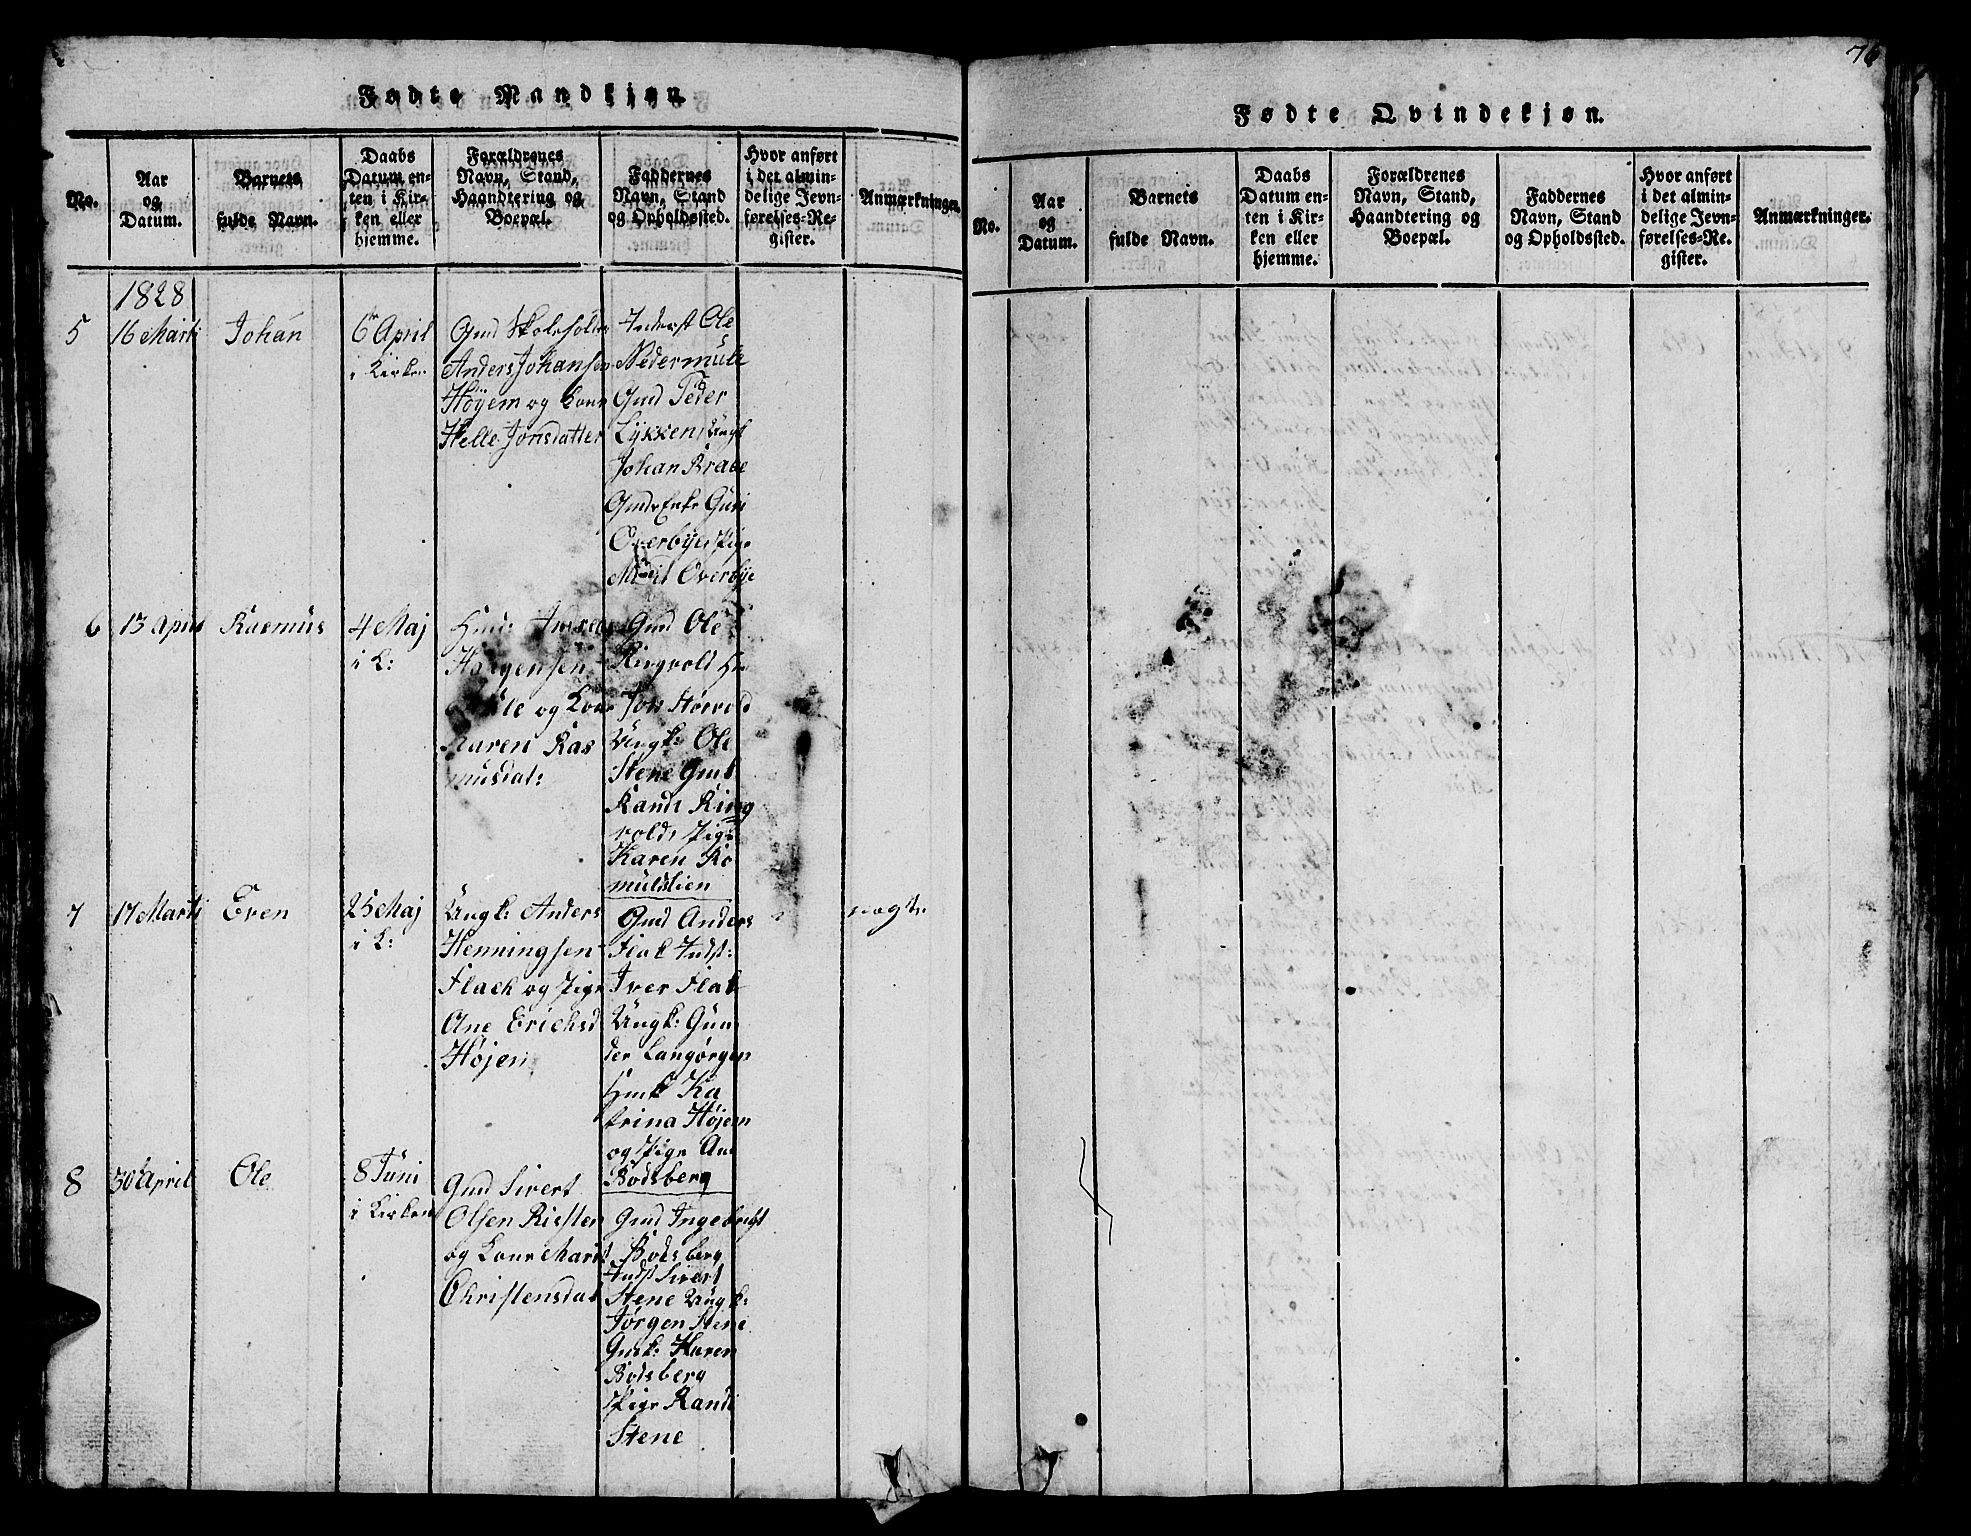 76
Fødte Mandkjøn.
No.
Aar
og
Datum.
Barnets
fulde Navn.
Daabs
Datum en-
ten i Kir-
ken eller
hjemme.
Forældrenes
Navn, Stand,
Haandtering og
Boepæl.
Faddernes
Navn, Stand
og Opholdssted.
Hvor anført
i det almin-
delige Jevn-
førelses-Re-
gister.
Anmærkninger.
1828
5
16 Marti
Johan
6 April
i Kirken
Gmd Skoleholder
Anders Johansen
Höyem og Kone
Helle Jonsdatter
Inderst Ole
Nedermüle
Gmd Peder
Lykken, Ungk
Johan Brabe
Gmds Enke Guri
Overbye, Pige
Marit Overbye
6
13 April
Rasmus
4 Maj
i K:
Hmd:
og Kone
Karen Ras
musdat:
Gmd Ole
Ringvold
Jon
Ungk: Ole
Stene Gmk
Randi Ring
vold, Pige
Karen Ro
mulslien
7
17 Marti
Even
25 Maj
i K:
Ungk: Anders
Henningsen
Flack og Pige
Ane Erichsd
Højem
Gmd Anders
Flak Indst:
Iver Flak
Ungk: Gun
der Langørgen
Hmk Ka
trina Højem
og Pige An
Bodsberg
uægte
8
30 April
Ole
8 Juni
i Kirken
Gmd Sivert
Olsen Risten
og Kone Marit
Christensdat
Gmd Ingebrigt
Bodsberg
Indst Sivert
Stene Ungk:
Jørgen Stene
Gmk: Karen
Bodsberg
Pige Randi
Stene
Fødte Qvindekjøn.
No.
Aar
og
Datum.
Barnets
fulde Navn.
Daabs
Datum en-
ten i Kir-
ken eller
hjemme.
Forældrenes
Navn, Stand,
Haandtering og
Boepæl.
Faddernes
Navn, Stand
og Opholdssted.
Hvor anført
i det almin-
delige Jevn-
førelses-Re-
gister.
Anmærkninger.